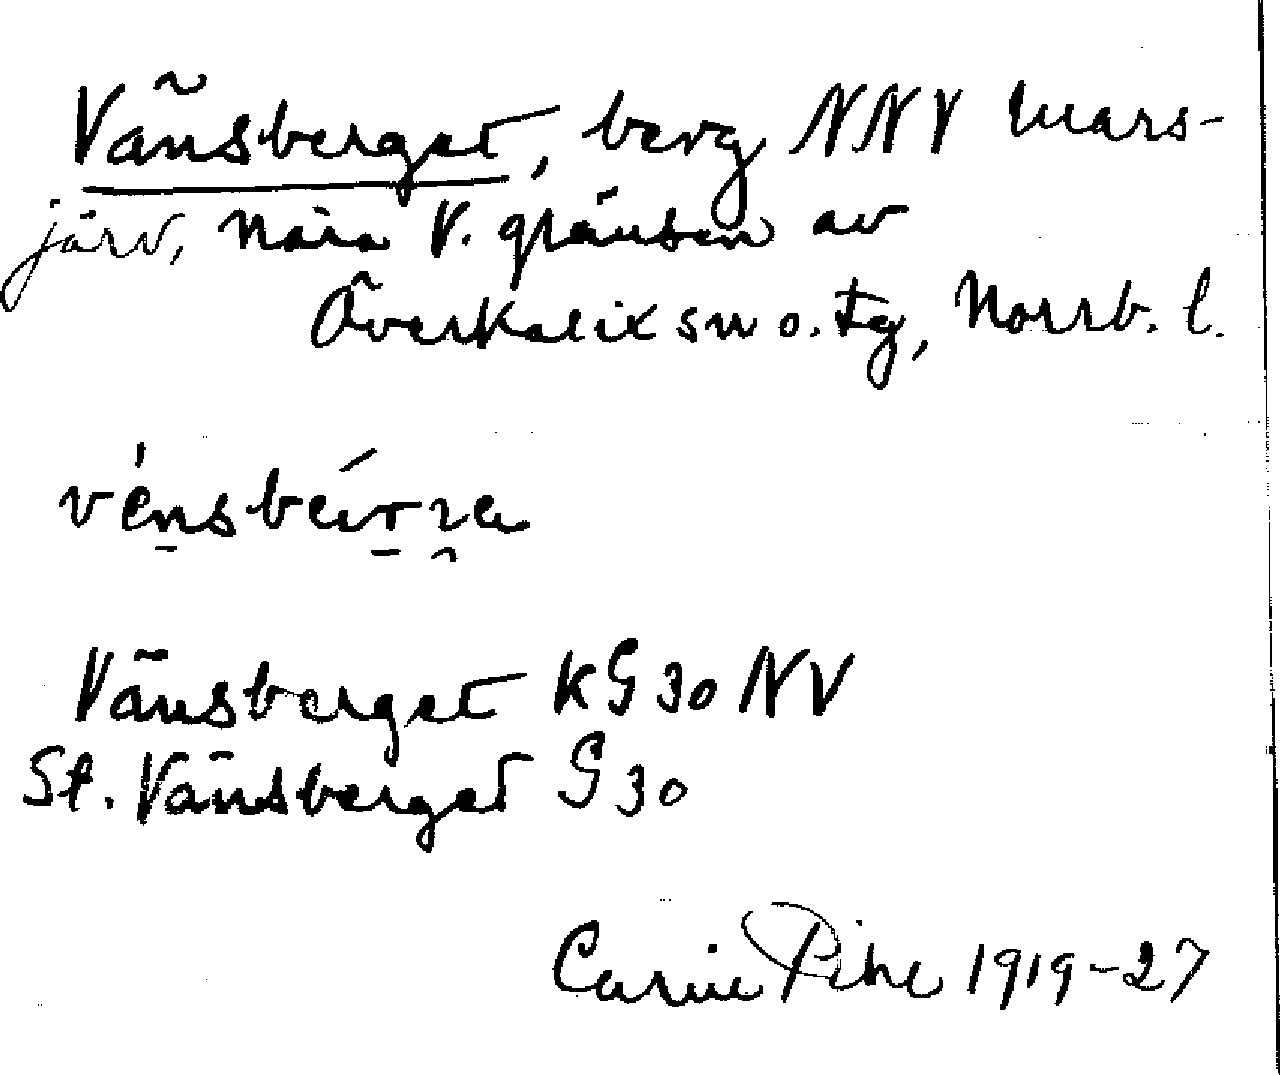 Vänsberget, berg NNV Mars-
järv, nära V. gränsen av
Överkalix sn o. tg, Norrb. l.
Vänsberget KG 30 NV
St. Vänsberget G 30
Carin Pihl 1919-27